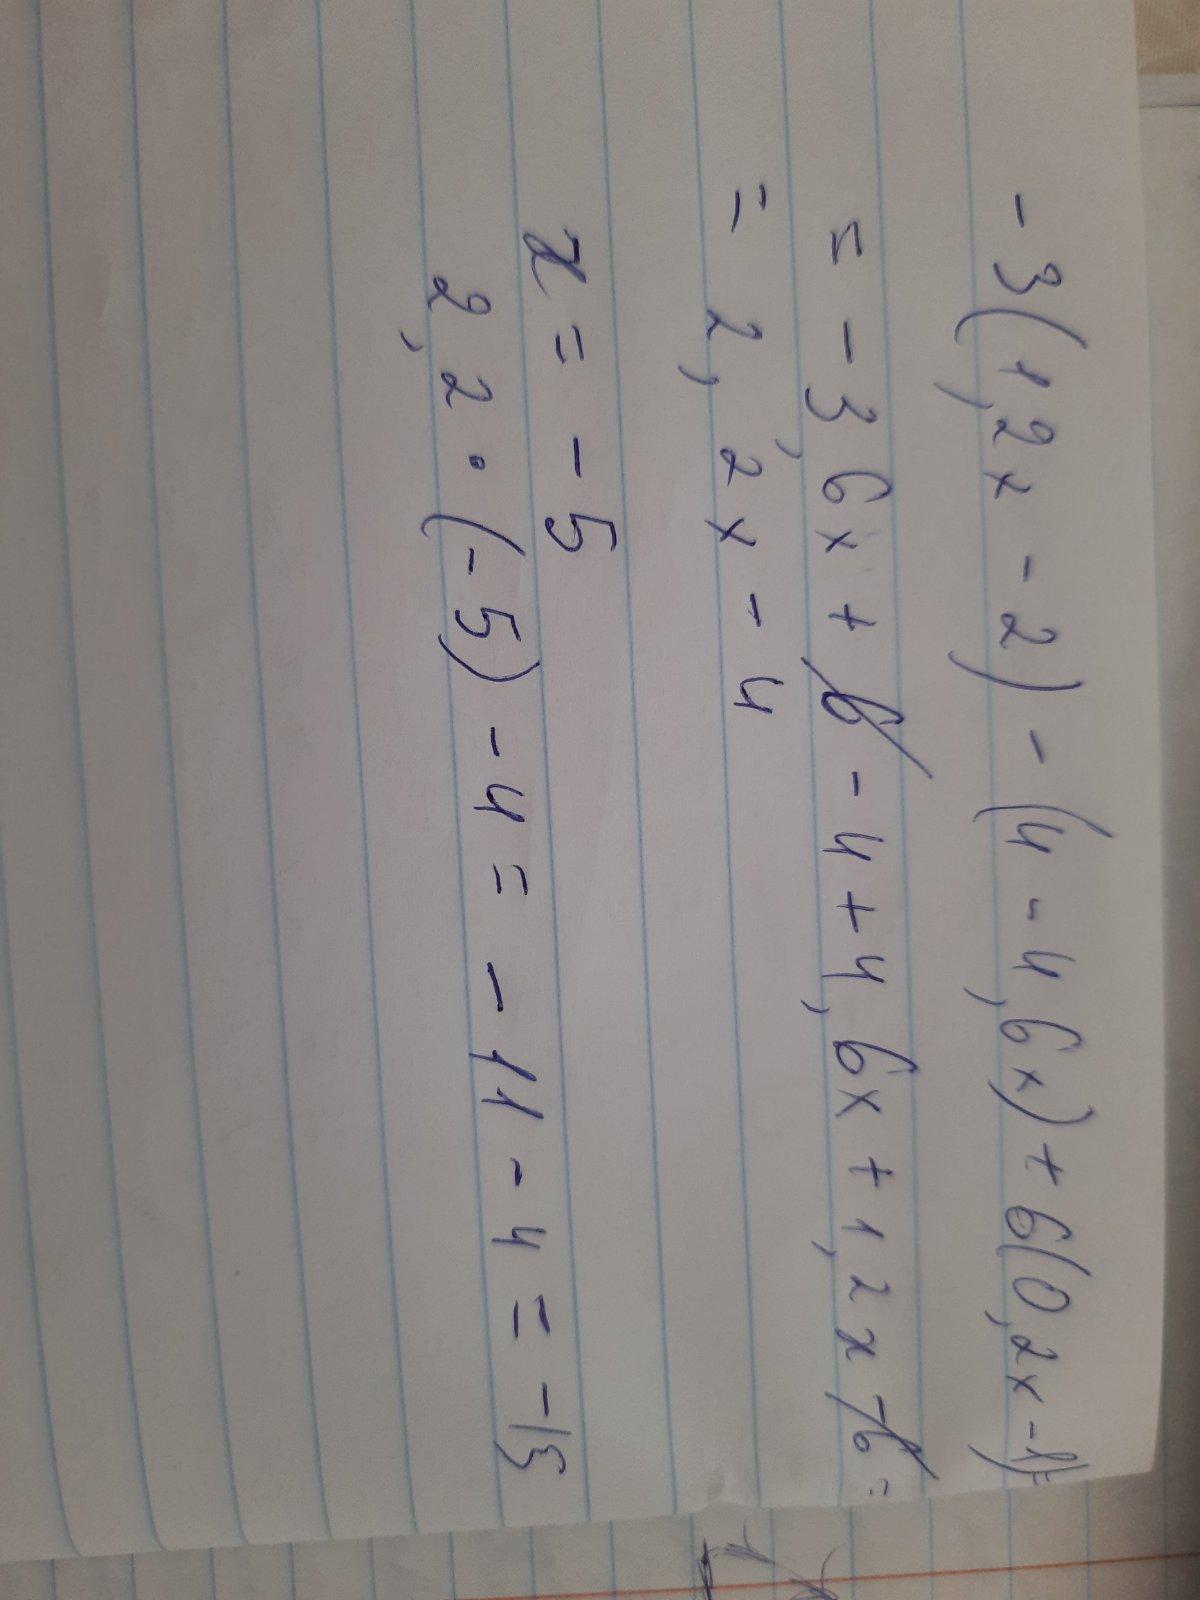 -3(1,2x-2)-(4-4,6x)+6(0,2x-1)=
=-3,6x+6-4+4,6x+1,2x-6=
=2,2x-4
x=-5
2,2·(-5)-4=-11-4=-15